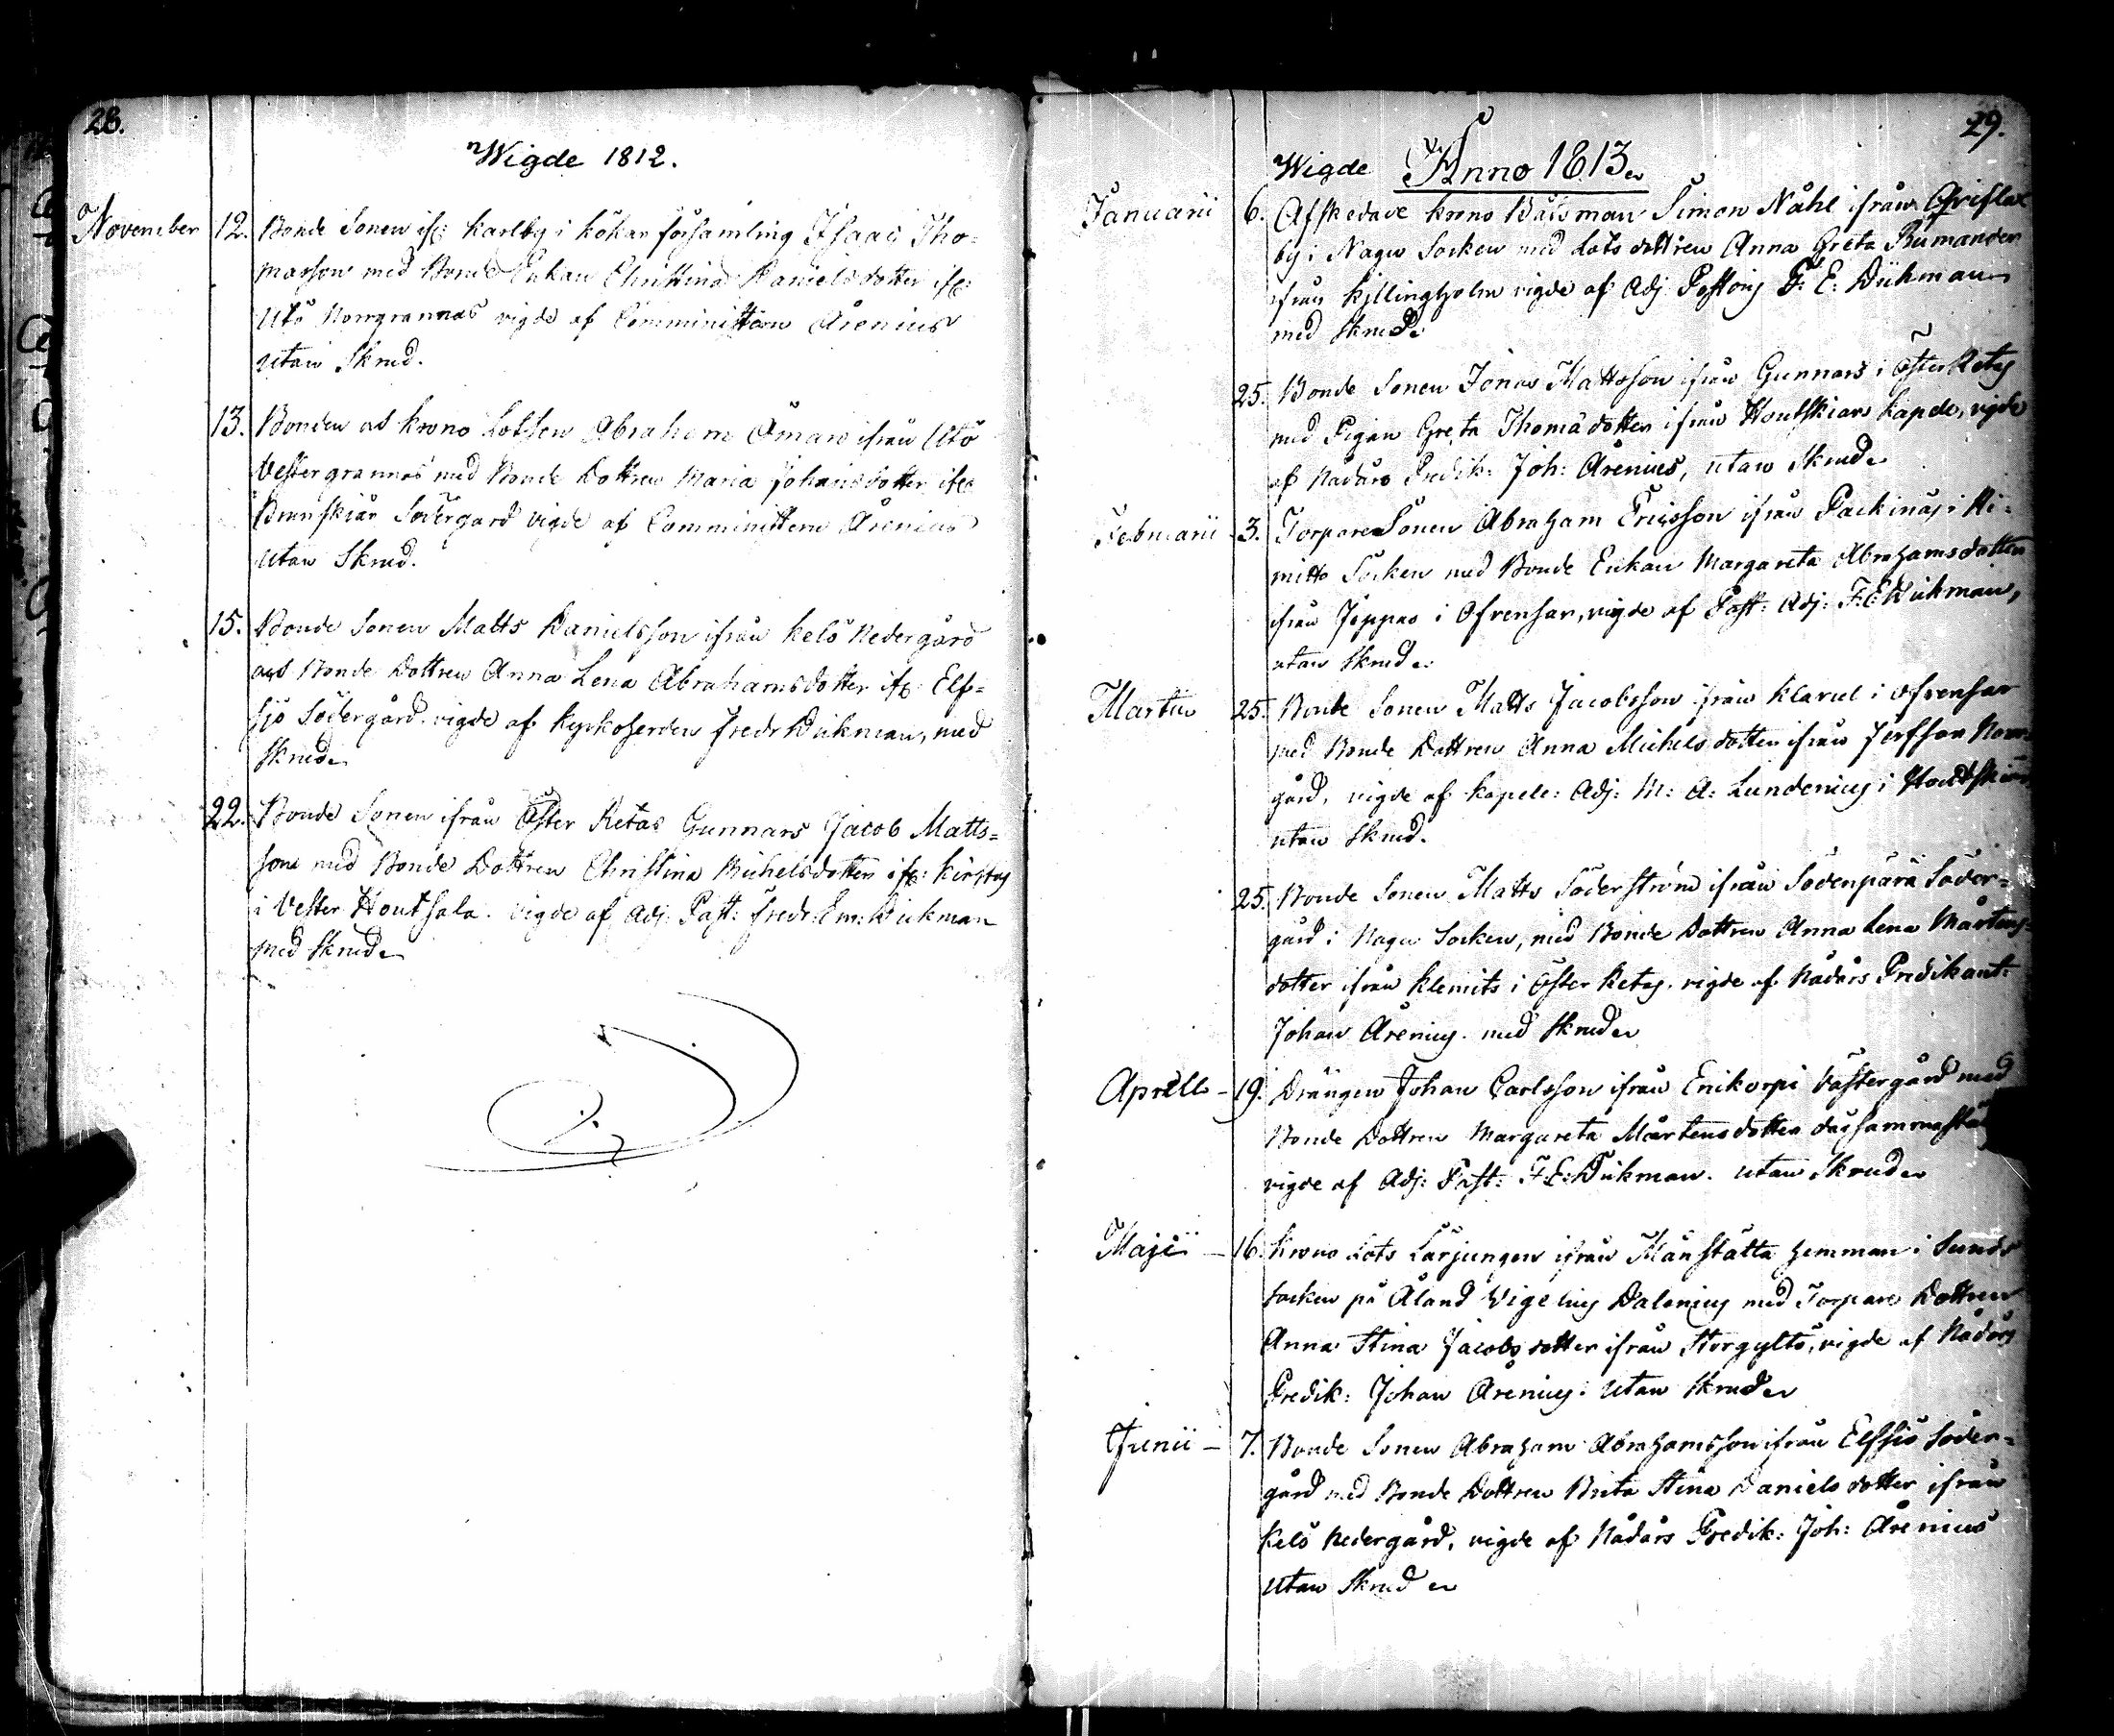 28.
Wigde 1812.
November 12. Bonde Sonen ifr: Karlby i Kökar församling Isaac Tho-
masson med Bonde Enkan Christina Danielsdotter ifr:
Utö Norrgrannas vigde af Comministern Arenius
utan Skrud.
13. Bonden och Krono Lotsen Abraham Öman ifrån Utö
Vestergrannas med Bonde Dottren Maria Johansdotter ifr:
Brunskiär Södergård vigde af Comministern Arenius
utan Skrud.
15. Bonde Sonen Matts Danielsson ifrån Kelö Nedergård
och Bonde Dottren Anna Lena Abrahamsdotter ifr: Elf-
sjö Södergård. vigde af Kyrkoherden Fredr Dükman, med
Skrud.
22. Bonde Sonen ifrån Öster Retas Gunnars Jacob Matts-
son med Bonde Dottren Christina Michelsdotter ifr: Kirstas
i Vester Houtsala. vigde af Adj. Past: Fredr: Em: Dükman
med Skrud.
29.
Wigde Anno 1813.
Januarii 6. Afskedade Krono Båtsman Simon Nåhl ifrån Grisslax
by i Nagu Socken med Lots dottren Anna Greta Rumander
ifrån Kjllingholm vigde af Adj Pastoris F: E: Dükman
med Skrud.
25. Bonde Sonen Jonas Mattsson ifrån Gunnars i Öster Retas
med Pigan Greta Thomædotter ifrån Houtskiars Capele, vigde
af Nådårs Predik: Joh: Arenius, utan Skrud.
Februarii 3. Torpare Sonen Abraham Ericsson ifrån Packinas i Ki-
mitto Socken med Bonde Enkan Margareta Abrahamsdotter
ifrån Joppas i Ofvensar, vigde af Past: Adj: F: E Dükman,
utan Skrud.
Martii 25. Bonde Sonen Matts Jacobsson ifrån Klavul i Ofvensar
med Bonde Dottren Anna Michelsdotter ifrån Jerfsor Norr-
gård, vigde af Kapele: Adj: M: A: Lundenius i Houtskiär
utan Skrud.
25. Bonde Sonen Matts Söderström ifrån Sodenpärä Söder-
gård i Nagu Socken, med Bonde Dottren Anna Lena Mårtens-
dotter ifrån Klemits i Öster Retas. vigde af Nådårs Predikant:
Johan Arenius. med Skrud.
Aprill - 19. Drängen Johan Carlsson ifrån Enikorpi Västergård med
Bonde Dottren Margareta Mårtensdotter därsammastä
vigde af Adj: Past: F: E: Dükman. utan Skrud.
Maji - 16. Krono Lots Lärjungen ifrån Månstätta hemman i Sunds
Socken på Åland Vigelius Dalenius med Torpare Dottren
Anna Stina Jacobsdotter ifrån Storgyltö, vigde af Nådårs
Predik: Johan Arenius. utan Skrud.
Junii - 7. Bonde Sonen Abraham Abrahamsson ifrån Elfsiö Söder-
gård med Bonde Dottren Brita Stina Danielsdotter ifrån
Kelö Nedergård, vigde af Nådårs Predik: Joh: Arenius
utan Skrud